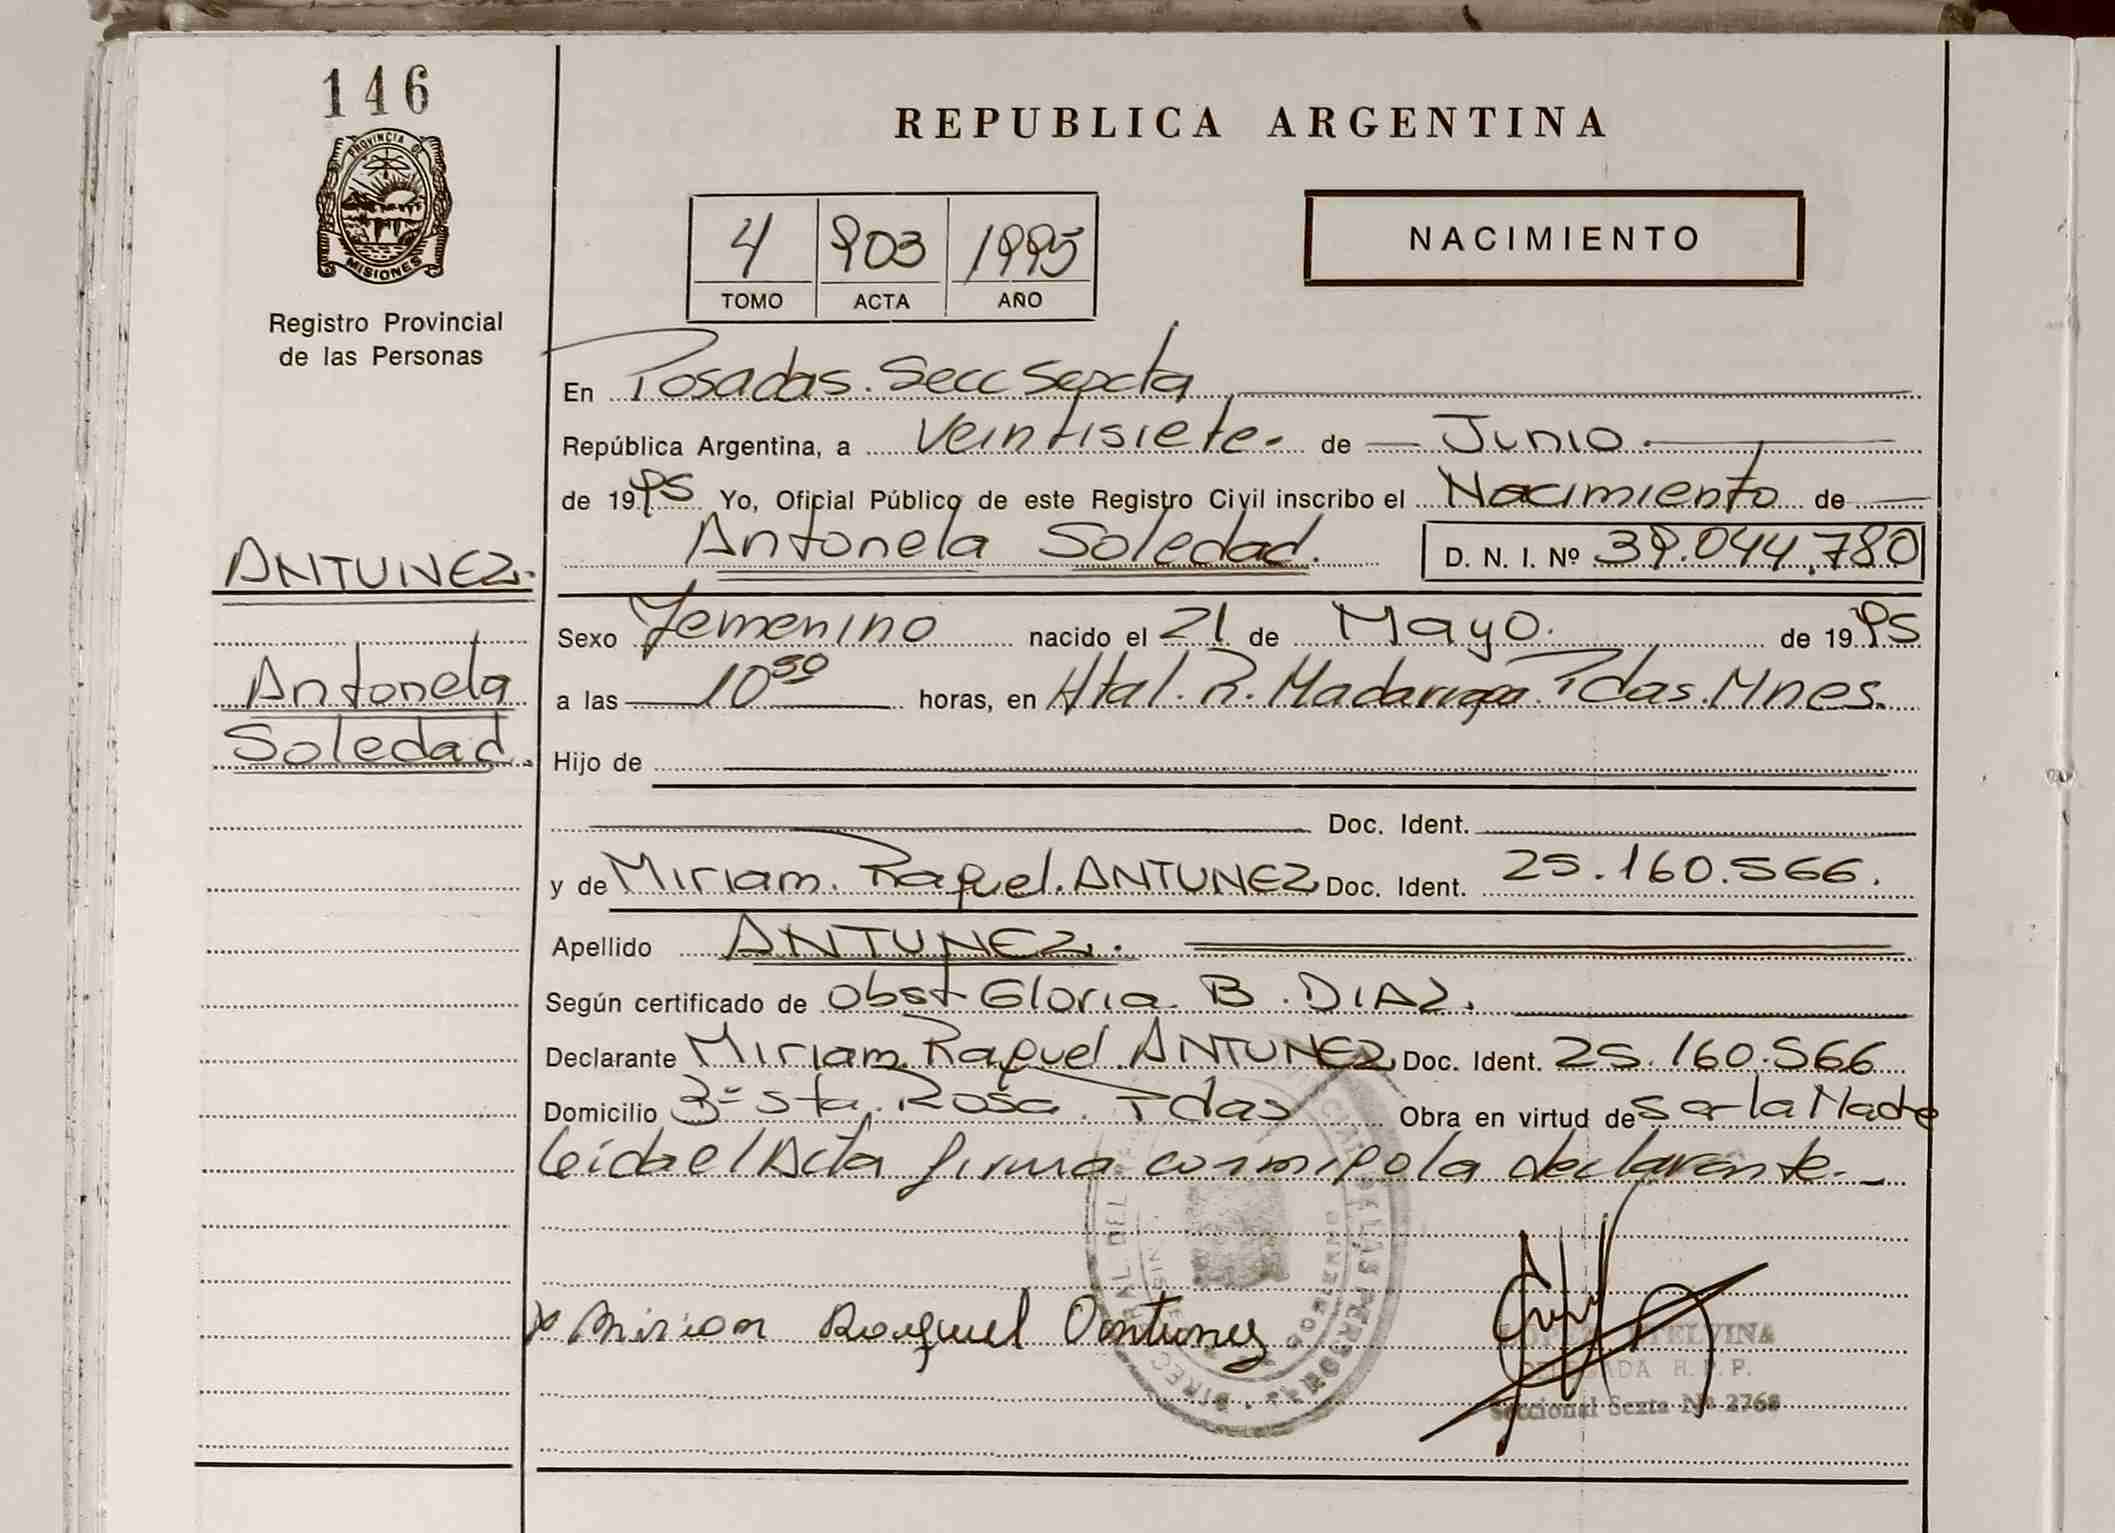 146
PROVINCIA DE
MISIONES
Registro Provincial
de las Personas
REPUBLICA ARGENTINA
4 903 1995
TOMO ACTA AÑO
NACIMIENTO
En Posadas. Secc Sexta
República Argentina, a Veintisiete. de Junio
de 1995 Yo, Oficial Público de este Registro Civil inscribo el Nacimiento de
Antonela Soledad. D. N. I. Nº 39.044.780
ANTUNEZ.
Antonela
Soledad.
Sexo Femenino nacido el 21 de Mayo. de 1995
a las 10 horas, en Htal. R. Madariaga. Pdas. Mnes.
Hijo de
Doc. Ident.
y de Miriam. Raquel. ANTUNEZ Doc. Ident. 25.160.566.
Apellido ANTUNEZ.
Según certificado de Obst Gloria B. DIAZ.
Declarante Miriam Raquel ANTUNEZ Doc. Ident. 25.160.566
Domicilio Sta. Rosa. Pdas Obra en virtud de Ser la Madre
leida el Acta firma conmigo la declarante.
x Mirian Raquel Antunez
LOPEZ ETELVINA
DELEGADA R. P. P.
Seccional Sexta Nº 2768